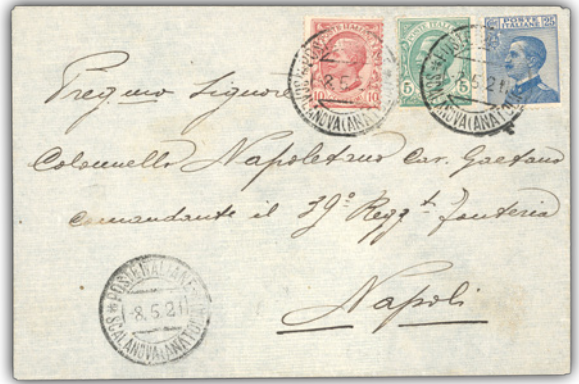 10
5
5
POSTE ITALIANE
25
25
POSTE ITALIANE
-8.5.21
SCALANOVA (ANATOL
POSTE ITALIANE
-8.5.21
SCALANOVA (ANATOL
Preg.mo Signore
Colonnello Napoletano Cav. Gaetano
comandante il 39° Regg.t Fanteria
Napoli
POSTE ITALIANE
-8.5.21
SCALANOVA (ANATOL